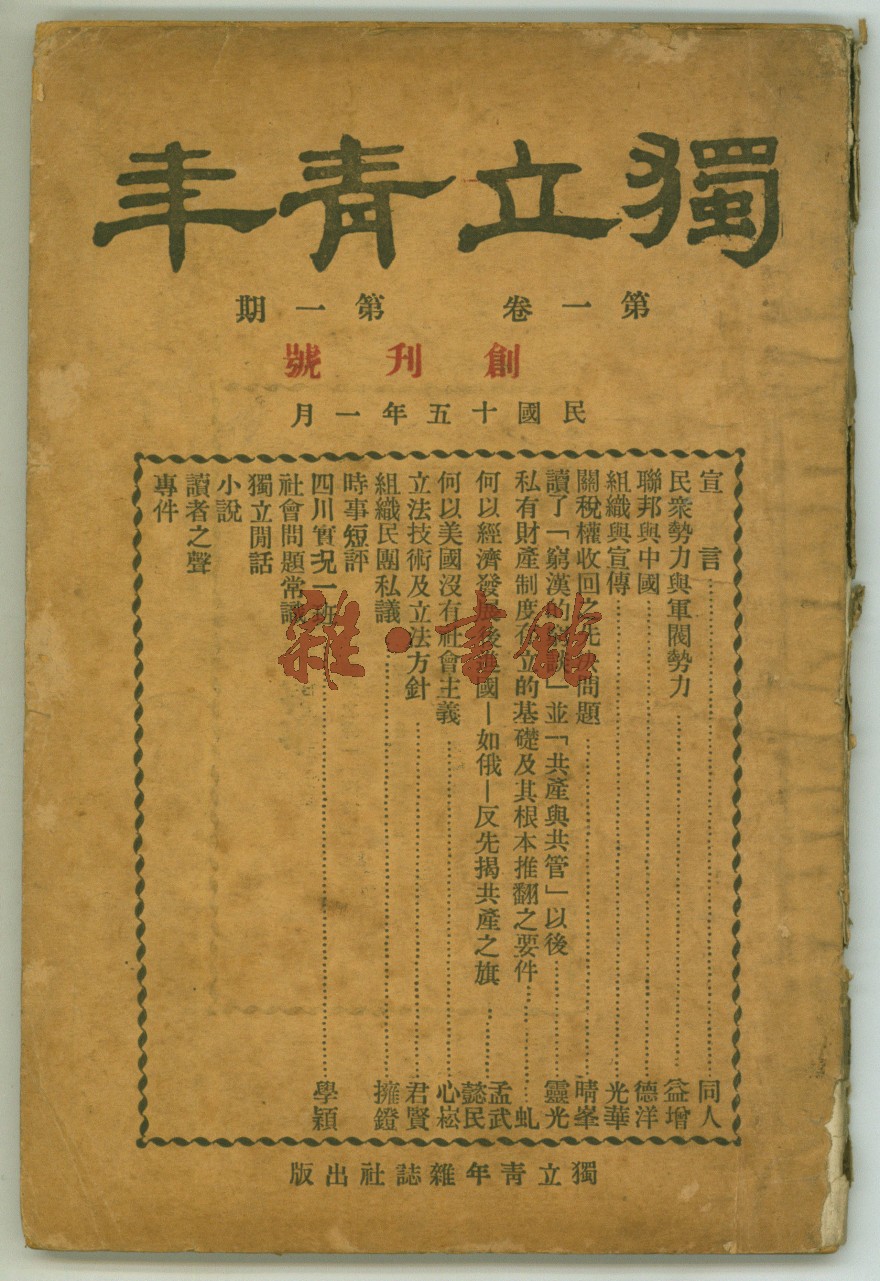 獨立青年
第一卷 第一期
創刊號
民國十五年一月
宣言……同人
民衆勢力與軍閥勢力……益增
聯邦與中國……德洋
組織與宣傳……光華
關稅權收回之先決問題……晴峯
讀了「窮漢的窮談」並「共產與共管」以後……靈光
私有財產制度存立的基礎及其根本推翻之要件……虬
何以經濟發展後進國—如俄—反先揭共產之旗……孟武 懿民
何以美國沒有社會主義……心崧
立法技術及立法方針……君賢
組織民團私議……擁鐙
時事短評
四川實況一班……學穎
社會問題常識
獨立閒話
小說
讀者之聲
專件
獨立青年雜誌社出版
雜·書館